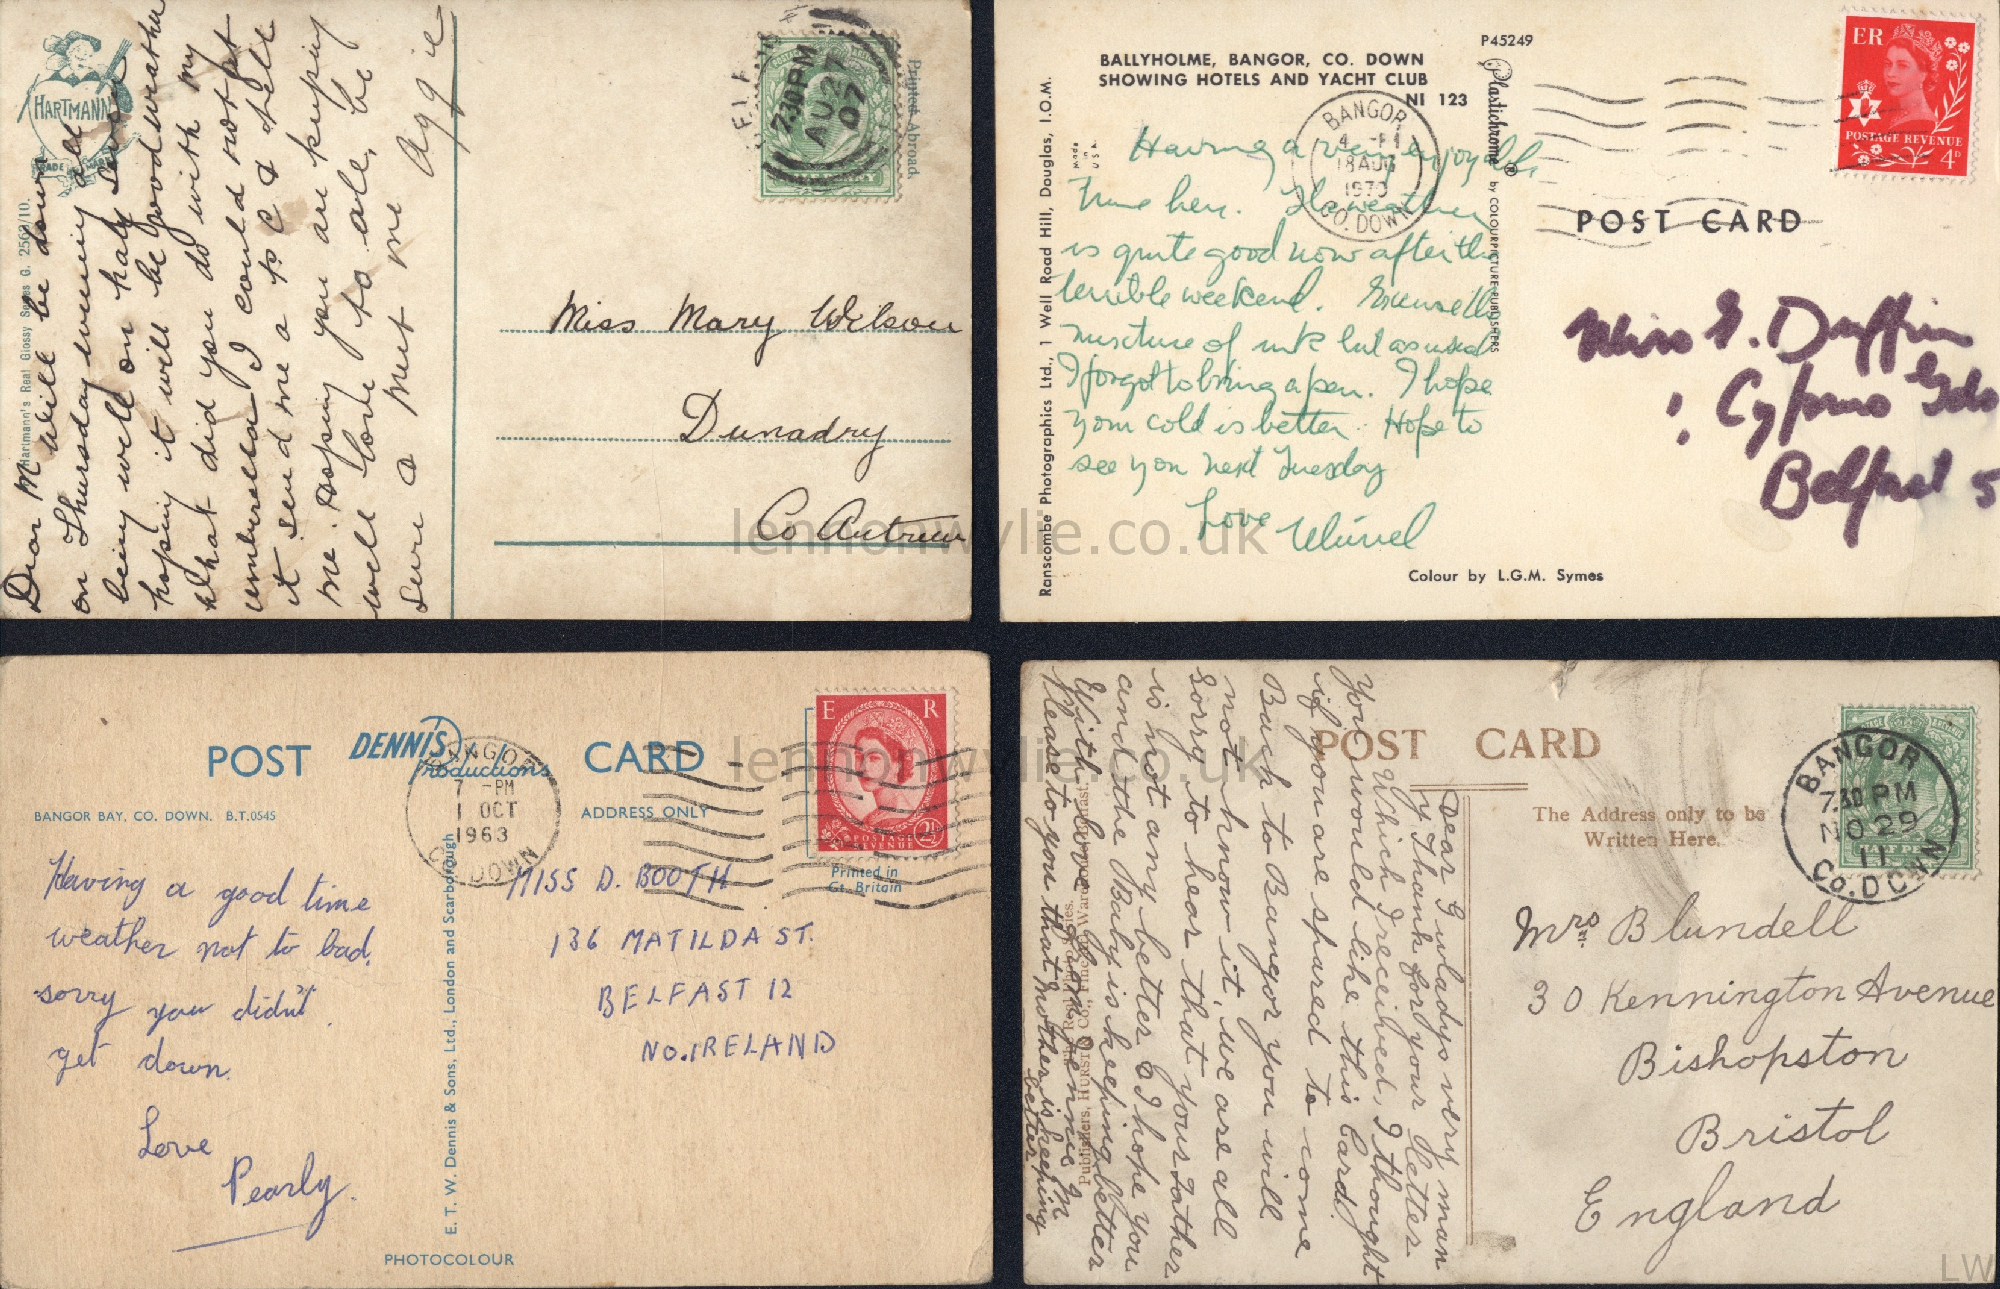 HARTMANN
TRADE MARK
Hartmann's Real Glossy Series G. 2562/10.
Dear M will be down
on Thursday evening all
being well on half
hoping it will be good weather
What did you do with my
umberella I could not get
it send me a P C & tell
me. Hoping you are keeping
well love to all, be
sure & meet me
Aggie
7.30 PM
AU 27
07
Printed Abroad.
Miss Mary Wilson
Dunadry
Co Antrim
BALLYHOLME, BANGOR, CO. DOWN
SHOWING HOTELS AND YACHT CLUB
NI 123
P45249
Plastichrome ® by COLOURPICTURE PUBLISHERS
Made in U.S.A.
Ranscombe Photographics Ltd., 1 Well Road Hill, Douglas, I.O.M.
BANGOR
4 -PM
18 AUG
1970
CO. DOWN
ER
POSTAGE REVENUE
4D
POST CARD
Having a very enjoyable
time here. The weather
is quite good now after the
terrible weekend. Excuse the
mixture of ink but as usual
I forgot to bring a pen. I hope
your cold is better. Hope to
see you next Tuesday
Love
Miss G. Duffin
Cyprus Gdns
Belfast 5
Colour by L.G.M. Symes
lennonwylie.co.uk
POST CARD
DENNIS
Productions
BANGOR BAY, CO. DOWN. B.T.0545
ADDRESS ONLY
BANGOR
7 -PM
1 OCT
1963
CO. DOWN
E R
POSTAGE REVENUE
2½
Printed in
Gt. Britain
Having a good time
weather not to bad,
sorry you didn't
get down.
Love
Pearly.
E. T. W. Dennis & Sons, Ltd., London and Scarborough
MISS D. BOOTH
136 MATILDA ST.
BELFAST 12
NO. IRELAND
PHOTOCOLOUR
lennonwylie.co.uk
POST CARD
The Address only to be
Written Here.
BANGOR
7.30 PM
29
11
CO. DOWN
HALF PENNY
Dear Gwladys very man
y Thank for your Letter
Which I received, I thought
you would like this Card.
if you are spared to come
Back to Bangor you will
not know it, we are all
sorry to hear that your Father
is not any better & I hope you
and the Baby is keeping better
With love from Jennie M
Please to you that Mother is keeping
better
Publishers, HURST & Co.,
Mrs Blundell
30 Kennington Avenue
Bishopston
Bristol
England
LW